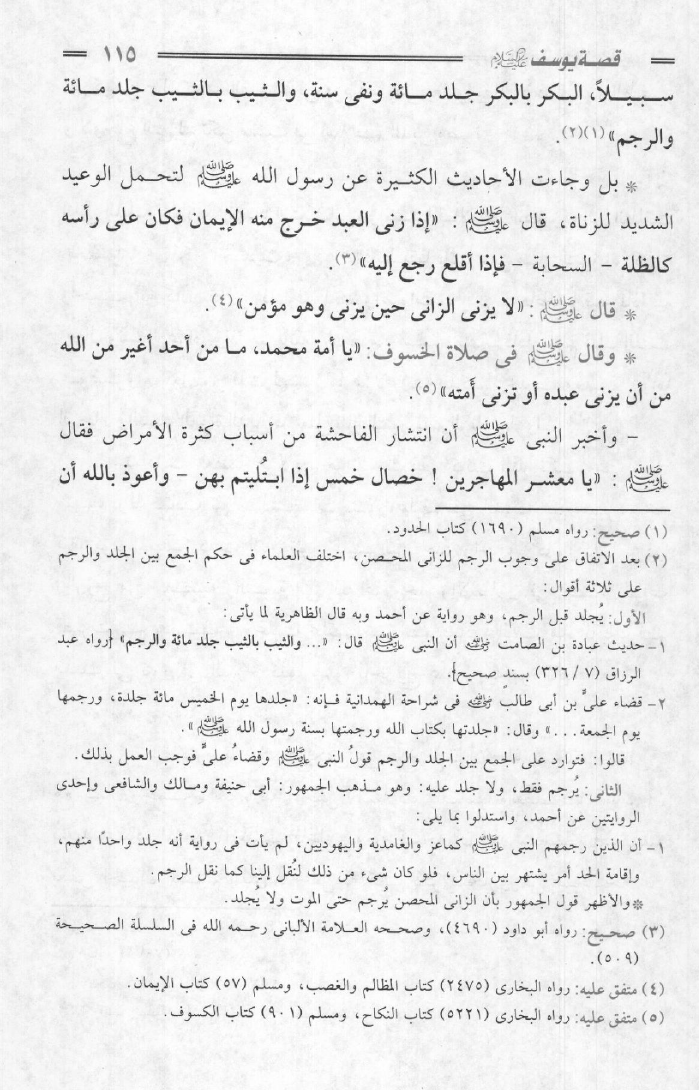 قصة يوسف عليه السلام ١١٥
سبيلاً، البكر بالبكر جلد مائة ونفى سنة، والثيب بالثيب جلد مائة
والرجم»(١)(٢).
* بل وجاءت الأحاديث الكثيرة عن رسول الله ﷺ لتحمل الوعيد
الشديد للزناة، قال ﷺ : «إذا زنى العبد خرج منه الإيمان فكان على رأسه
كالظلة - السحابة - فإذا أقلع رجع إليه»(٣).
* قال ﷺ : «لا يزنى الزانى حين يزنى وهو مؤمن»(٤).
* وقال ﷺ فى صلاة الخسوف: «يا أمة محمد، ما من أحد أغير من الله
من أن يزنى عبده أو تزنى أَمته»(٥).
- وأخبر النبى ﷺ أن انتشار الفاحشة من أسباب كثرة الأمراض فقال
ﷺ : «يا معشر المهاجرين ! خصال خمس إذا ابتُليتم بهن - وأعوذ بالله أن
(١) صحيح: رواه مسلم (١٦٩٠) كتاب الحدود.
(٢) بعد الاتفاق على وجوب الرجم للزانى المحصن، اختلف العلماء فى حكم الجمع بين الجلد والرجم
على ثلاثة أقوال:
الأول: يُجلد قبل الرجم، وهو رواية عن أحمد وبه قال الظاهرية لما يأتى:
١- حديث عبادة بن الصامت رضي الله عنه أن النبى ﷺ قال: «... والثيب بالثيب جلد مائة والرجم» {رواه عبد
الرزاق (٧ / ٣٢٦) بسندٍ صحيح}.
٢- قضاء علىِّ بن أبى طالب رضي الله عنه فى شراحة الهمدانية فإنه: «جلدها يوم الخميس مائة جلدة، ورجمها
يوم الجمعة...» وقال: «جلدتها بكتاب الله ورجمتها بسنة رسول الله ﷺ».
قالوا: فتوارد على الجمع بين الجلد والرجم قولُ النبى ﷺ وقضاءُ علىٍّ فوجب العمل بذلك.
الثانى: يُرجم فقط، ولا جلد عليه: وهو مذهب الجمهور: أبى حنيفة ومالك والشافعى وإحدى
الروايتين عن أحمد، واستدلوا بما يلى:
١- أن الذين رجمهم النبى ﷺ كماعز والغامدية واليهوديين، لم يأت فى رواية أنه جلد واحدًا منهم،
وإقامة الحد أمر يشتهر بين الناس، فلو كان شىء من ذلك لنُقل إلينا كما نقل الرجم.
* والأظهر قول الجمهور بأن الزانى المحصن يُرجم حتى الموت ولا يُجلد.
(٣) صحيح: رواه أبو داود (٤٦٩٠)، وصححه العلامة الألبانى رحمه الله فى السلسلة الصحيحة
(٥٠٩).
(٤) متفق عليه: رواه البخارى (٢٤٧٥) كتاب المظالم والغصب، ومسلم (٥٧) كتاب الإيمان.
(٥) متفق عليه: رواه البخارى (٥٢٢١) كتاب النكاح، ومسلم (٩٠١) كتاب الكسوف.